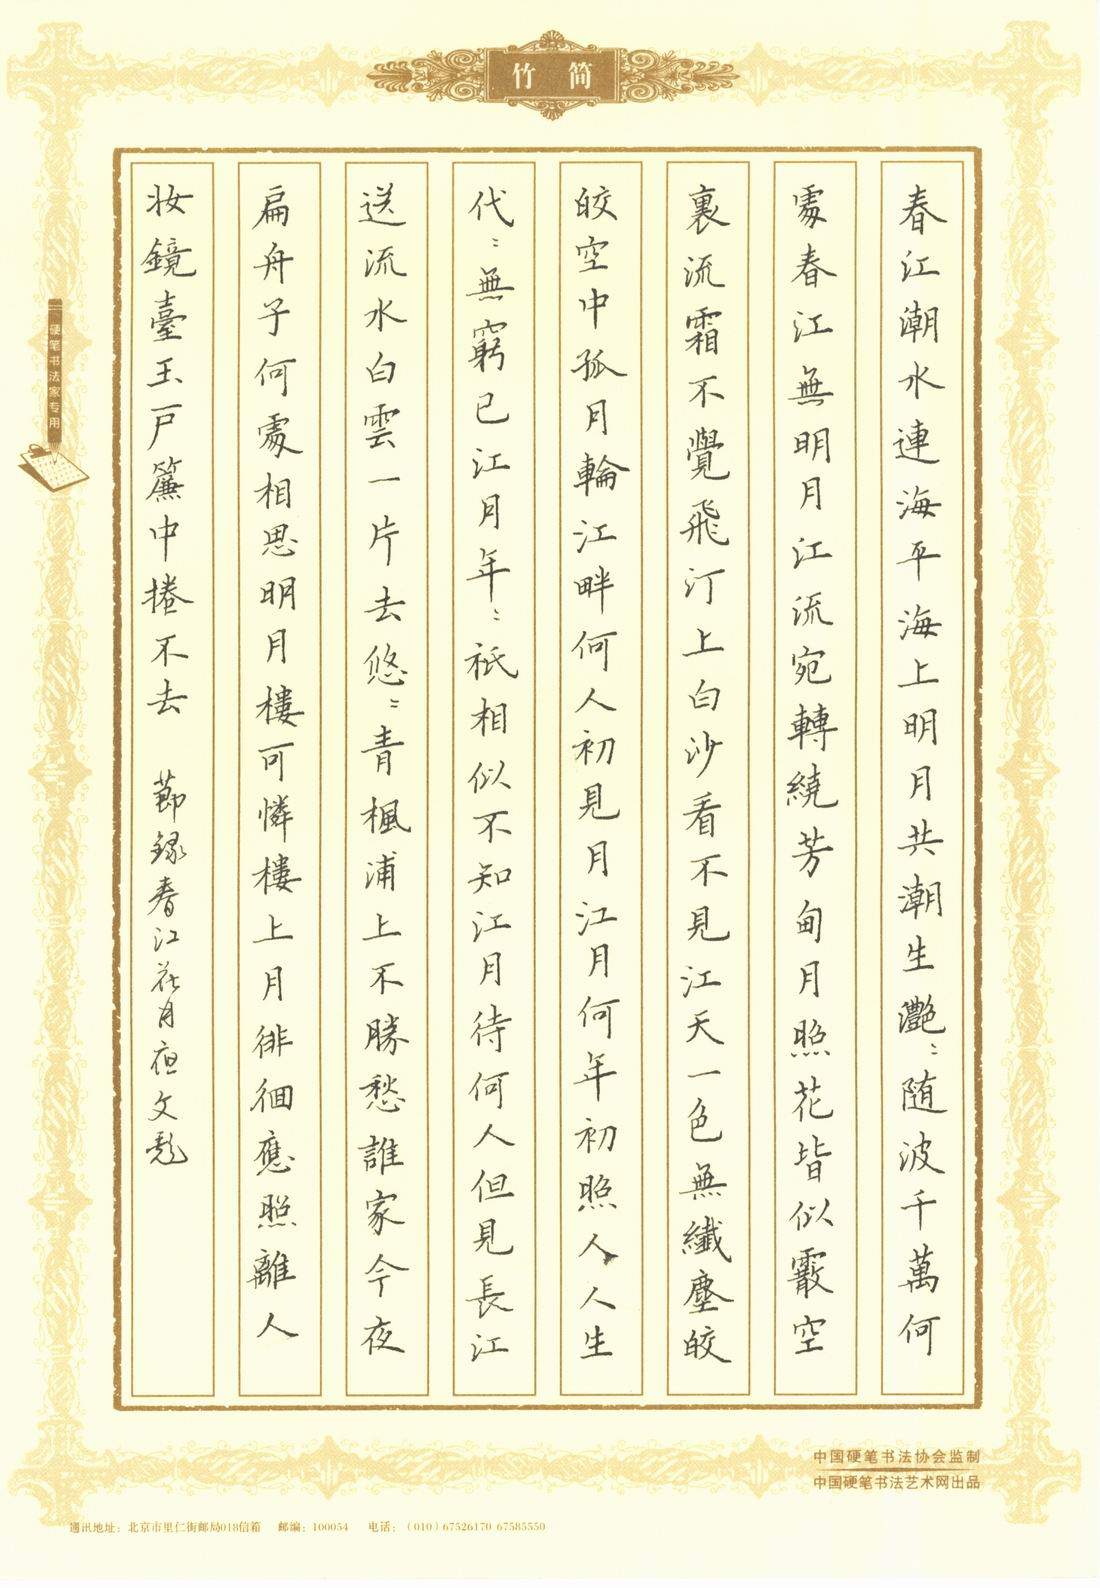 竹简
硬笔书法家专用
春江潮水連海平海上明月共潮生灩〻随波千萬何
處春江無明月江流宛轉繞芳甸月照花皆似霰空
裏流霜不覺飛汀上白沙看不見江天一色無纖塵皎
皎空中孤月輪江畔何人初見月江月何年初照人人生
代〻無窮已江月年〻祇相似不知江月待何人但見長江
送流水白雲一片去悠〻青楓浦上不勝愁誰家今夜
扁舟子何處相思明月樓可憐樓上月徘徊應照離人
妝鏡臺玉戶簾中捲不去 節録春江花月夜文彪
中国硬笔书法协会监制
中国硬笔书法艺术网出品
通讯地址：北京市里仁街邮局018信箱 邮编：100054 电话：（010）67526170 67585550